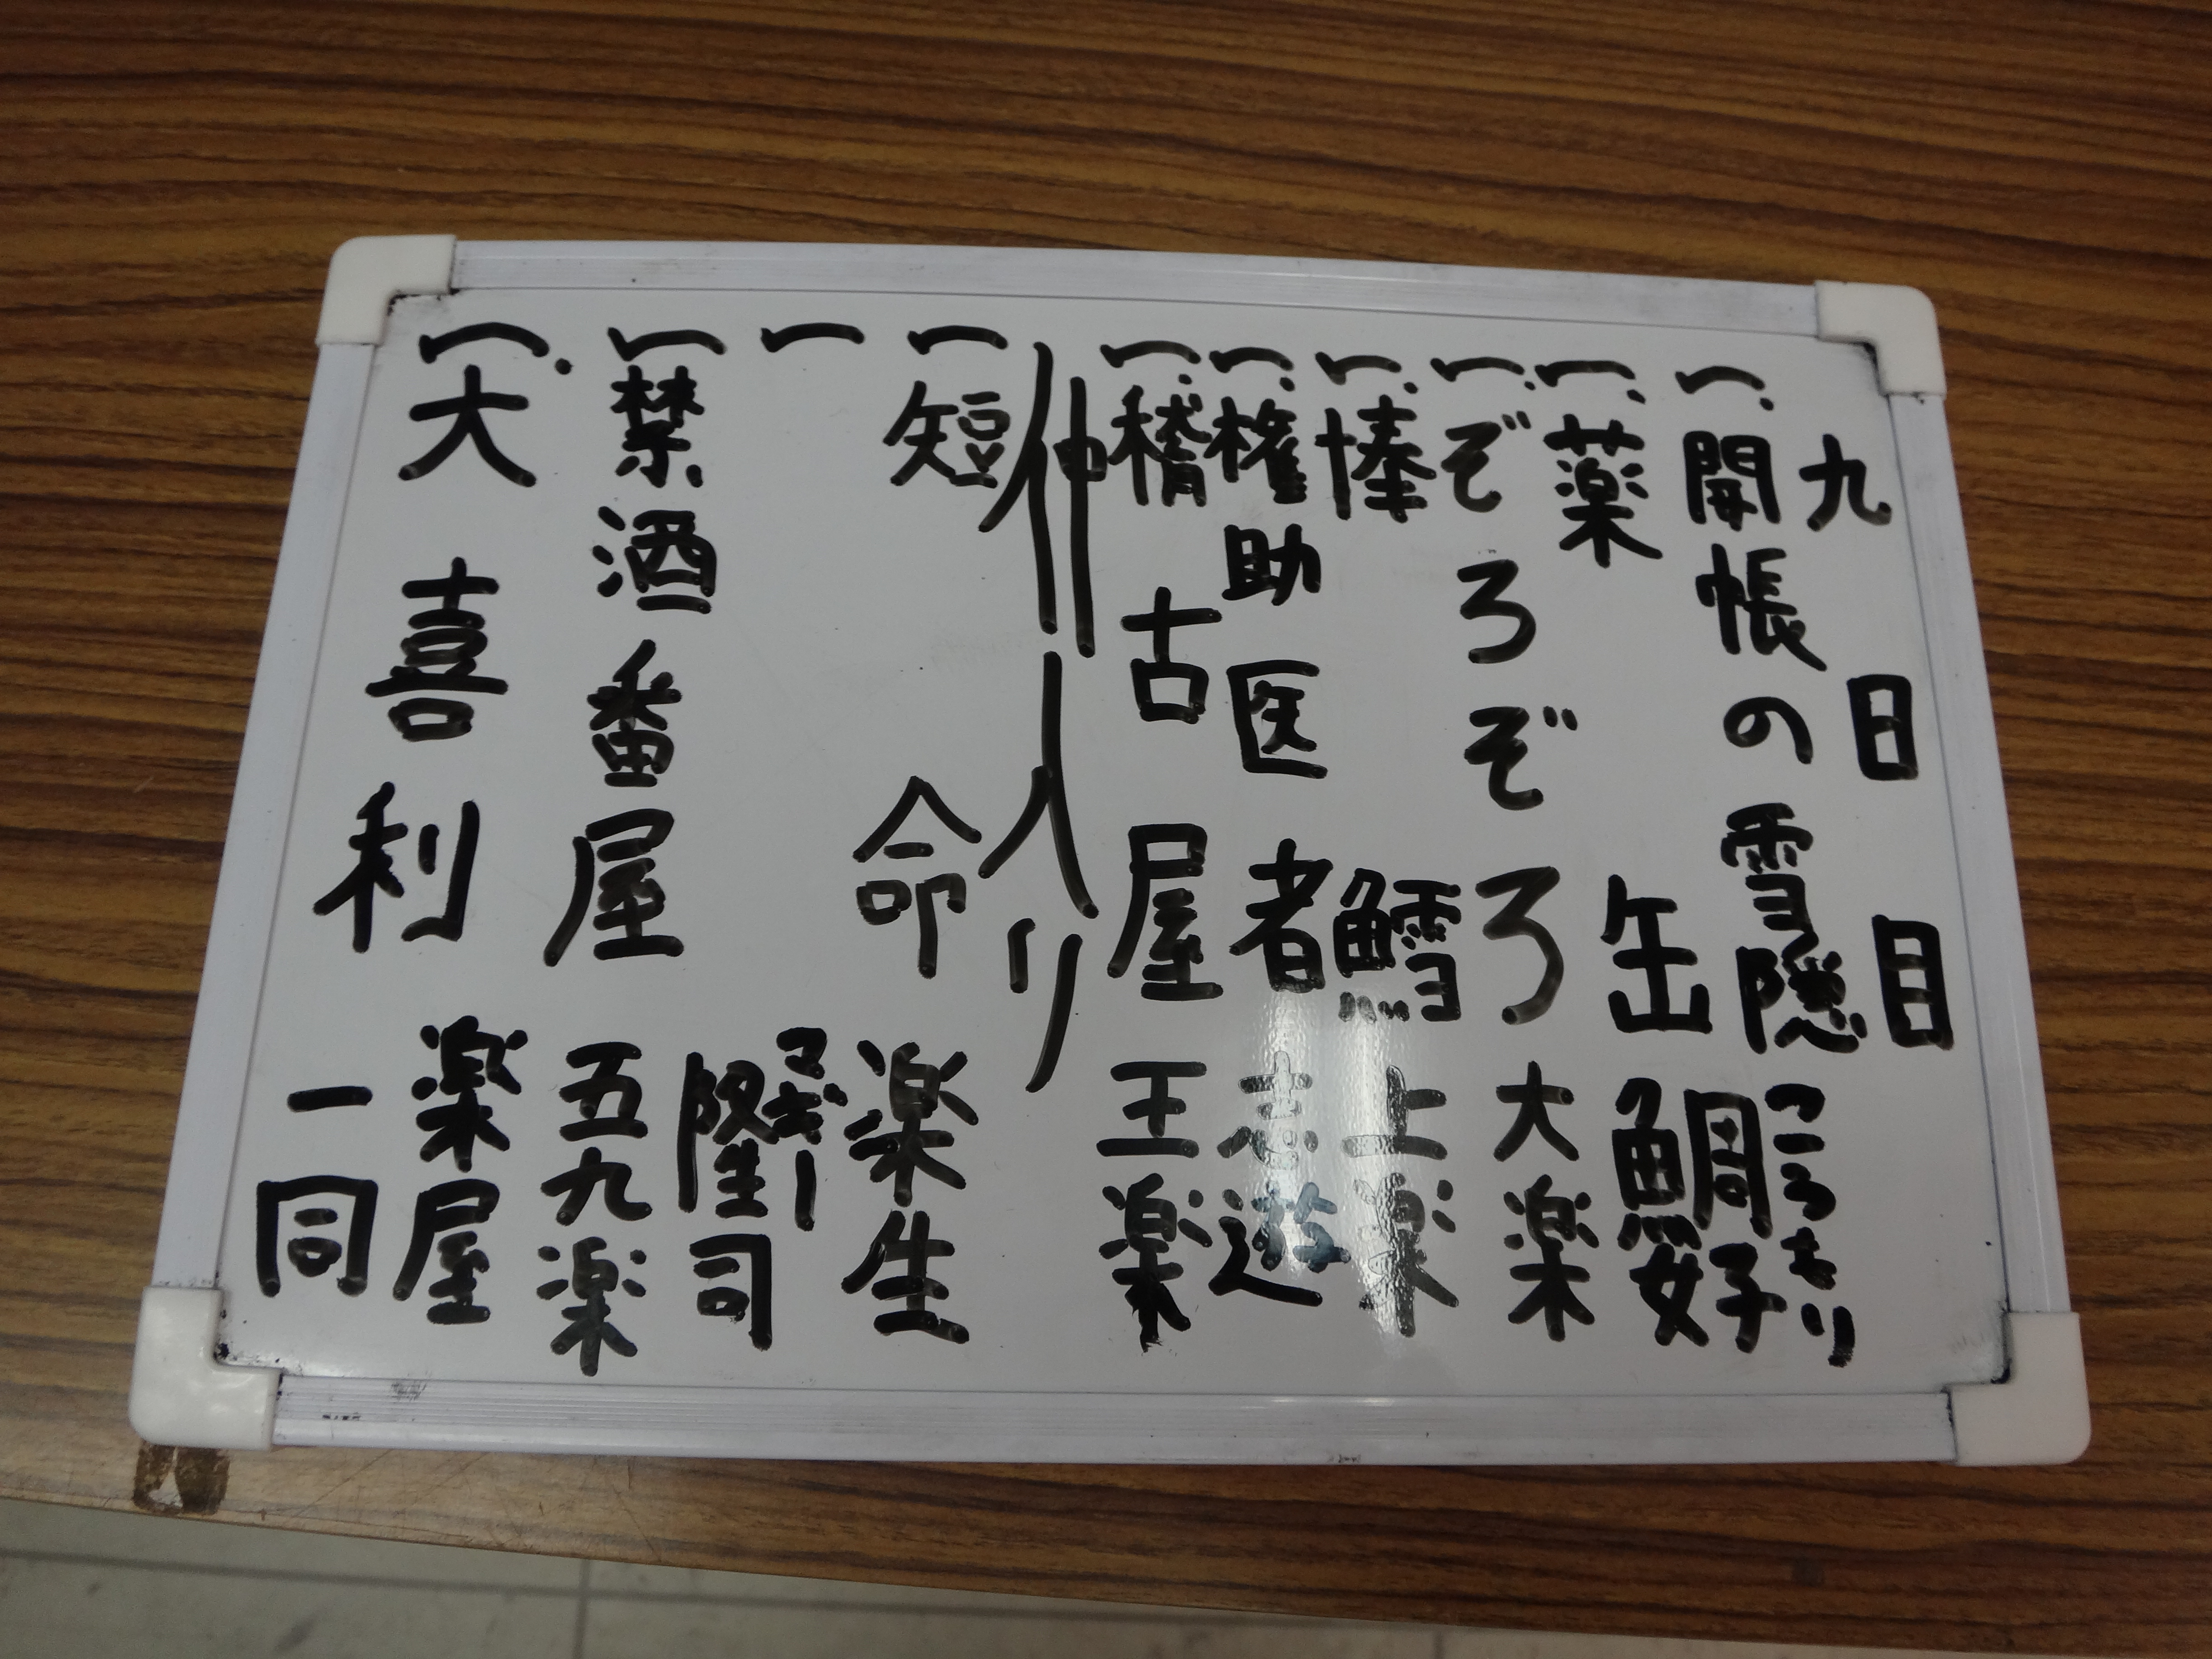 九日目
一.開帳の雪隠 こうもり
一.薬缶 鯛好
一.ぞろぞろ 大楽
一.棒鱈 上楽
一.権助医者 志遊
一.稽古屋 王楽
仲入り
一 短命 楽生
一 マギー隆司
一 禁酒番屋 五九楽
一.大喜利 楽屋一同